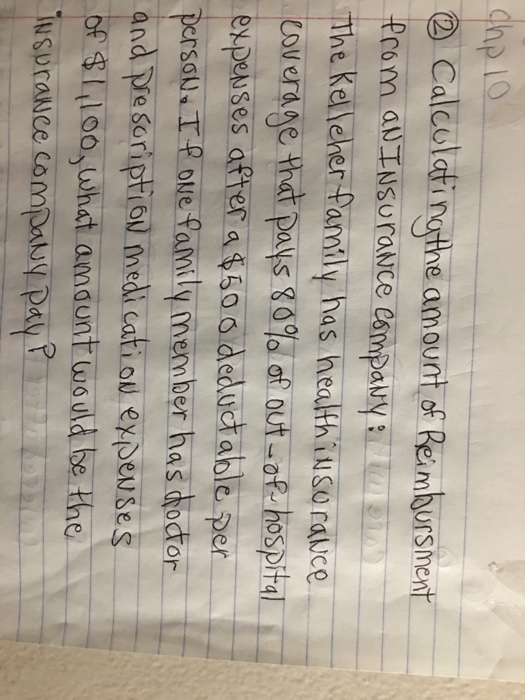 Chp 10
② Calculating the amount of Reimbursment
from an Insurance company:
The Kelleher family has health insurance
coverage that pays 80% of out-of-hospital
expenses after a $500 deductable per
person. If one family member has doctor
and prescription medication expenses
of $1,100, what amount would be the
insurance company pay?